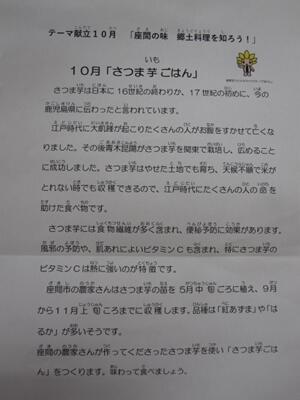 テーマ献立１０月 「座間の味 郷土料理を知ろう！」
１０月「さつま芋ごはん」
さつま芋は日本に16世紀の終わりか、17世紀の初めに、今の
鹿児島県に伝わったと言われています。
江戸時代に大飢饉が起こりたくさんの人がお腹をすかせて亡くな
りました。その後青木昆陽がさつま芋を関東で栽培し、広めること
に成功しました。さつま芋はやせた土地でも育ち、天候不順で米が
とれない時でも収穫できるので、江戸時代にたくさんの人の命を
助けた食べ物です。
さつま芋には食物繊維が多く含まれ、便秘予防に効果があります。
風邪の予防や、肌あれによいビタミンCも含まれ、特にさつま芋の
ビタミンCは熱に強いのが特徴です。
座間市の農家さんはさつま芋の苗を5月中旬ころに植え、9月
から11月上旬ころまでに収穫します。品種は「紅あずま」や「は
るか」が多いそうです。
座間の農家さんが作ってくださったさつま芋を使い「さつま芋ごは
ん」をつくります。味わって食べましょう。